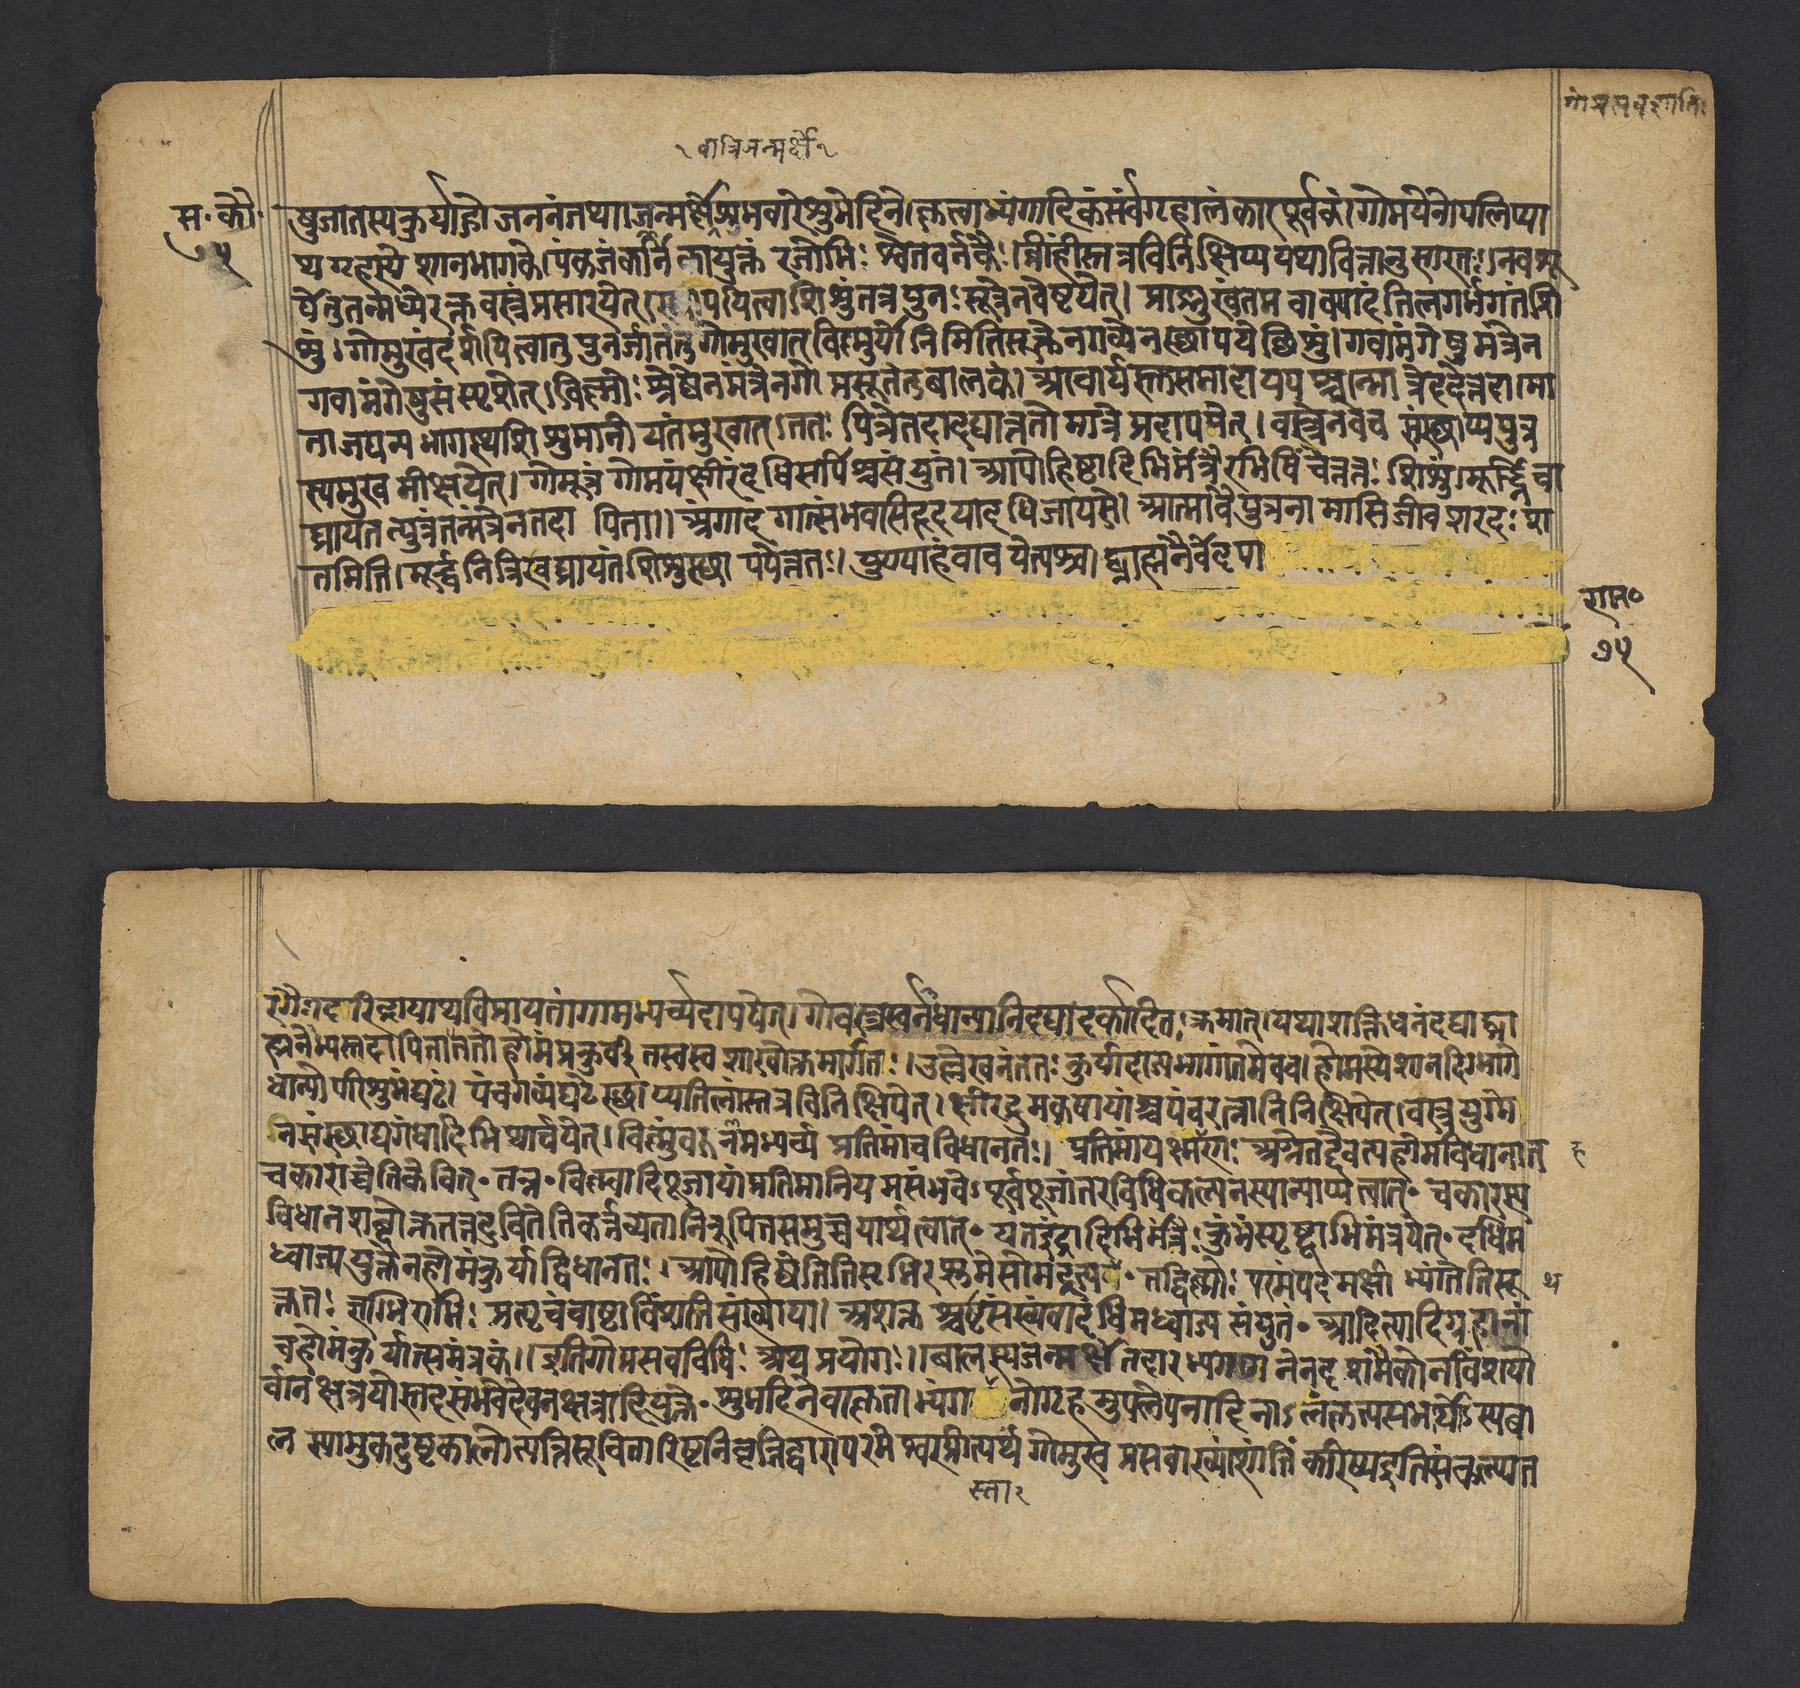 गोप्रसवशांति
१ वात्रिजन्मर्क्षे १
स॰ कौ॰
७५
षुजातस्यकुर्याद्गोजननंतथा।जन्मर्क्षेशुभवारेशुभेदिने।कृत्वाभ्यंगादिकंसर्वंगृहालंकारपूर्वकं।गोमयेनोपलिप्या
थगृहस्येशानभागके।पंकजंकर्णिकायुक्तं रजोभिः श्वेतवर्नकैः।व्रीहींस्तत्रविनिक्षिप्ययथावित्तानुसारतः।नवशू
र्पेतुतन्मध्येरक्तवस्त्रंप्रसारयेत्। पयित्वाशिशुंतत्रपुनःसूत्रेनवेष्टयेत्। प्राङ्मुखंतम वाक्पादं तिलगर्भगतंशि
शुं।गोमुखंदर्शयित्वातु पुनर्जातंतुगोमुखात् विष्णुर्योनिमितिसूक्तेनगव्येनस्छापयेछिशुं।गवामंगेषुमंत्रेन
गवामंगेषुसंस्पृशेत्।विष्णोः श्रेष्ठेनमंत्रेनगो प्रसूतंतुबालकं। आचार्यस्तसमादाय पश्चान्मात्रेददेत्तदा।मा
ताजघन्यभागस्थशिशुमानीयतंमुखात्।ततः पित्रेतदादद्यात्ततोमात्रे प्रदापयेत्। वस्त्रेनवेच संस्छाप्यपुत्र
स्यमुख मीक्षयेत्। गोमूत्रं गोमयंक्षीरंदधिसर्पिश्चसंयुतं। आपोहिष्ठादिभिर्मंत्रैरभिषिंचेत्ततः शिशुं।मूर्द्ध्निचा
घ्रायतत्पुत्रंतन्मंत्रेनतदा पिता।। अंगादंगात्संभवसिहृदयादधिजायसे। आत्मावैपुत्रनामासिजीवशरदः शा
तमिति।मूर्द्धनित्रिरवघ्रायंतशिशुंस्छापयेत्ततः। पुण्याहंवाचयेत्पश्चाद्ब्राह्मनैर्वेदपा
राम॰
७५
रगैः।दरिद्रायाथविप्रायतांगामभ्यर्च्यदापयेत्। गोवस्त्रस्वर्नधान्यानिदद्यादर्कादितःक्रमात्।यथाशक्तिधनंदद्याद्ब्रा
ह्मनेभ्यस्तदापितातितोहोमंप्रकुर्वीतस्वस्वशाखोक्तमार्गतः।उल्लेखनंततः कुर्यादाज्यभागांतमेवच।होमस्येशानदिग्भागे
धान्योपरिशुभंघटं। पंचगव्यंघटेस्छाप्यतिलांस्तत्रविनिक्षिपेत्। क्षीरद्रुमकषायांश्चपंचरत्नानिनिक्षिपेत्।वस्त्रयुग्मे
निसंस्छाद्यगंधादिभिरथार्चयेत्। विष्णुंवरुनमभ्यर्च्य प्रतिमांचविधानतः। प्रतिमांयक्ष्मणः अत्रतद्दैवत्यहोमविधानात्
ह
चकाराच्चेतिकेचित्॰ तन्न॰ विष्ण्वादिपूजायांप्रतिमानियमसंभवेऽपूर्वपूजांतरविधिकल्पनस्यान्याय्यत्वात्॰ चकारस्य
विधानशब्दोक्ततत्तदुचितेतिकर्त्तव्यतानिरूपितसमुच्चयार्थत्वात्॰ यतइंद्रादिभिर्मंत्रैः कुंभंस्पृष्ट्वाभिमंत्रयेत्॰दधिम
ध्वाज्ययुक्तेनहोमंकुर्याद्विधानतः। आपोहिष्ठेतितिसृभिरप्सुमेसोमइत्यृचा॰ तद्विष्णोः परमंपदमक्षीभ्यांतेतिसू
थ
क्ततः। ऋग्भिराभिः प्रत्यृचंचाष्टाविंशतिसंख्यया। अशक्तश्चाष्टसंख्यंवादधिमध्वाज्यसंयुतं॰ आदित्यादिग्रहानां
चहोमंकुर्यात्समंत्रकं।।इतिगोप्रसवविधिः अथ प्रयोगः।।बालस्यजन्मर्क्षेतदारभ्यगणनेनदशमैकोनविंशयो
र्वानक्षत्रयोस्तदसंभवेदेवनक्षत्रादियुक्ते॰ शुभदिनेवाकृताभ्यंगः नोगृहमुपलेपनादिनाऽलंकृत्यसभार्योऽस्यबा
लस्यामुकदुष्टकालोत्पत्तिसूचितारिष्टनिवृत्तिद्वारापरमेश्वरप्रीत्यर्थं गोमुख प्रसवाख्यांशांतिं करिष्यइतिसंकल्प्यत
स्ता २